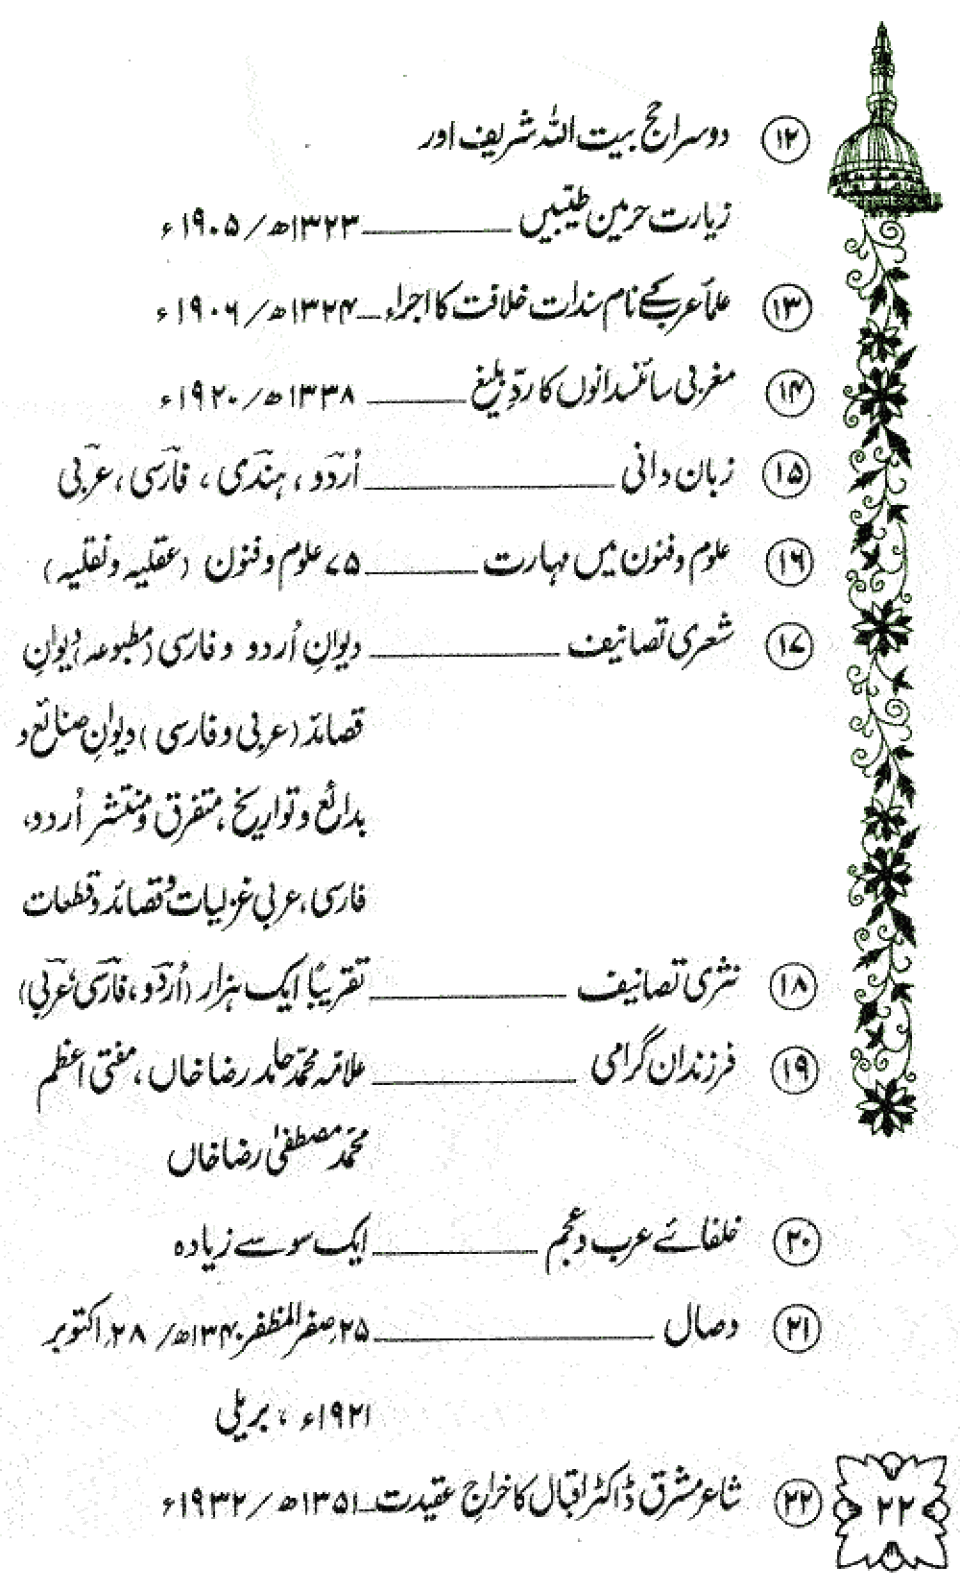 ۱۲ دوسرا حج بیت اللہ شریف اور
زیارت حرمین طیبیں ـــــ ۱۳۲۳ھ/ ۱۹۰۵ء
۱۳ علمأ عرب کے نام سندات خلافت کا اجراء ـــ ۱۳۲۴ھ/ ۱۹۰۶ء
۱۴ مغربی سائنسدانوں کا ردِّ بلیغ ـــــ ۱۳۳۸ھ/ ۱۹۲۰ء
۱۵ زبان دانی ـــــ اُردو ، ہندی ، فارسی ، عربی
۱۶ علوم و فنون میں مہارت ـــــ ۷۵ علوم و فنون (عقلیہ و نقلیہ)
۱۷ شعری تصانیف ـــــ دیوانِ اُردو و فارسی (مطبوعہ) دیوانِ
قصائد (عربی و فارسی) دیوانِ صنائع و
بدائع و تواریخ ، متفرق و منتشر اُردو،
فارسی، عربی غزلیات و قصائد و قطعات
۱۸ نثری تصانیف ـــــ تقریبًا ایک ہزار (اُردو، فارسی، عربی)
۱۹ فرزندان گرامی ـــــ علامہ محمّد حامد رضا خاں ، مفتی اعظم
محمّد مصطفیٰ رضا خاں
۲۰ خلفائے عرب و عجم ـــــ ایک سو سے زیادہ
۲۱ وصال ـــــ ۲۵؍ صفر المظفر ۱۳۴۰ھ/ ۲۸؍ اکتوبر
۱۹۲۱ء ، بریلی
۲۲ شاعر مشرق ڈاکٹر اقبال کا خراجِ عقیدت ـــ ۱۳۵۱ھ/ ۱۹۳۲ء
۲۲